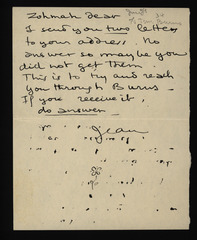 Zohmah dear
I send you two letters
to your address. No
answer so maybe you
did not get them
This is to try and reach
you through Burns -
If you receive it,
do answer -
Jean